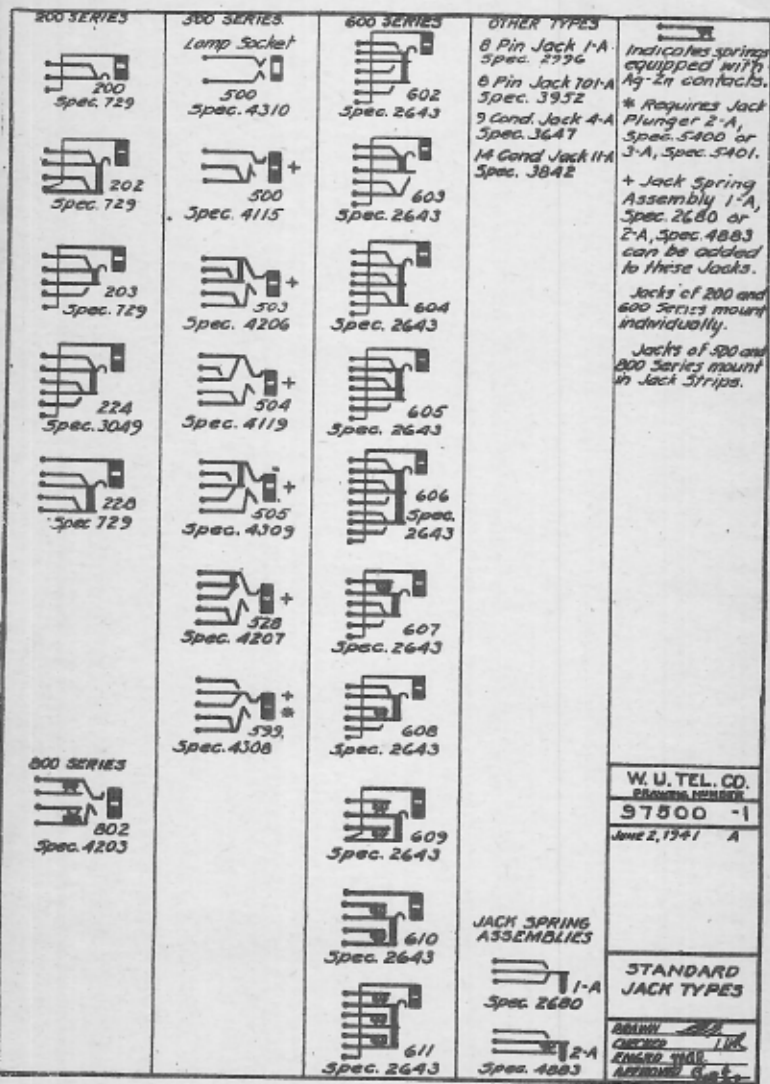 200 SERIES
200
Spec. 729
202
Spec. 729
203
Spec. 729
224
Spec. 3049
228
Spec 729
800 SERIES
802
Spec. 4203
500 SERIES
Lamp Socket
500
Spec. 4310
+
500
Spec. 4115
+
503
Spec. 4206
+
504
Spec. 4119
+
505
Spec. 4309
+
528
Spec. 4207
+
*
599
Spec. 4308
600 SERIES
602
Spec. 2643
603
Spec. 2643
604
Spec. 2643
605
Spec. 2643
606
Spec.
2643
607
Spec. 2643
608
Spec. 2643
609
Spec. 2643
610
Spec. 2643
611
Spec. 2643
OTHER TYPES
8 Pin Jack 1-A
Spec. 2996
8 Pin Jack 701-A
Spec. 3952
9 Cond. Jack 4-A
Spec. 3647
14 Cond Jack 11-A
Spec. 3842
JACK SPRING
ASSEMBLIES
1-A
Spec. 2680
2-A
Spec. 4883
Indicates springs
equipped with
Ag-Zn contacts.
* Requires Jack
Plunger 2-A,
Spec. 5400 or
3-A, Spec. 5401.
+ Jack Spring
Assembly 1-A,
Spec. 2680 or
2-A, Spec. 4883
can be added
to these Jacks.
Jacks of 200 and
600 Series mount
individually.
Jacks of 500 and
800 Series mount
in Jack Strips.
W. U. TEL. CO.
DRAWING NUMBER
97500 -1
June 2, 1941 A
STANDARD
JACK TYPES
DRAWN
CHECKED
ENGRD
APPROVED